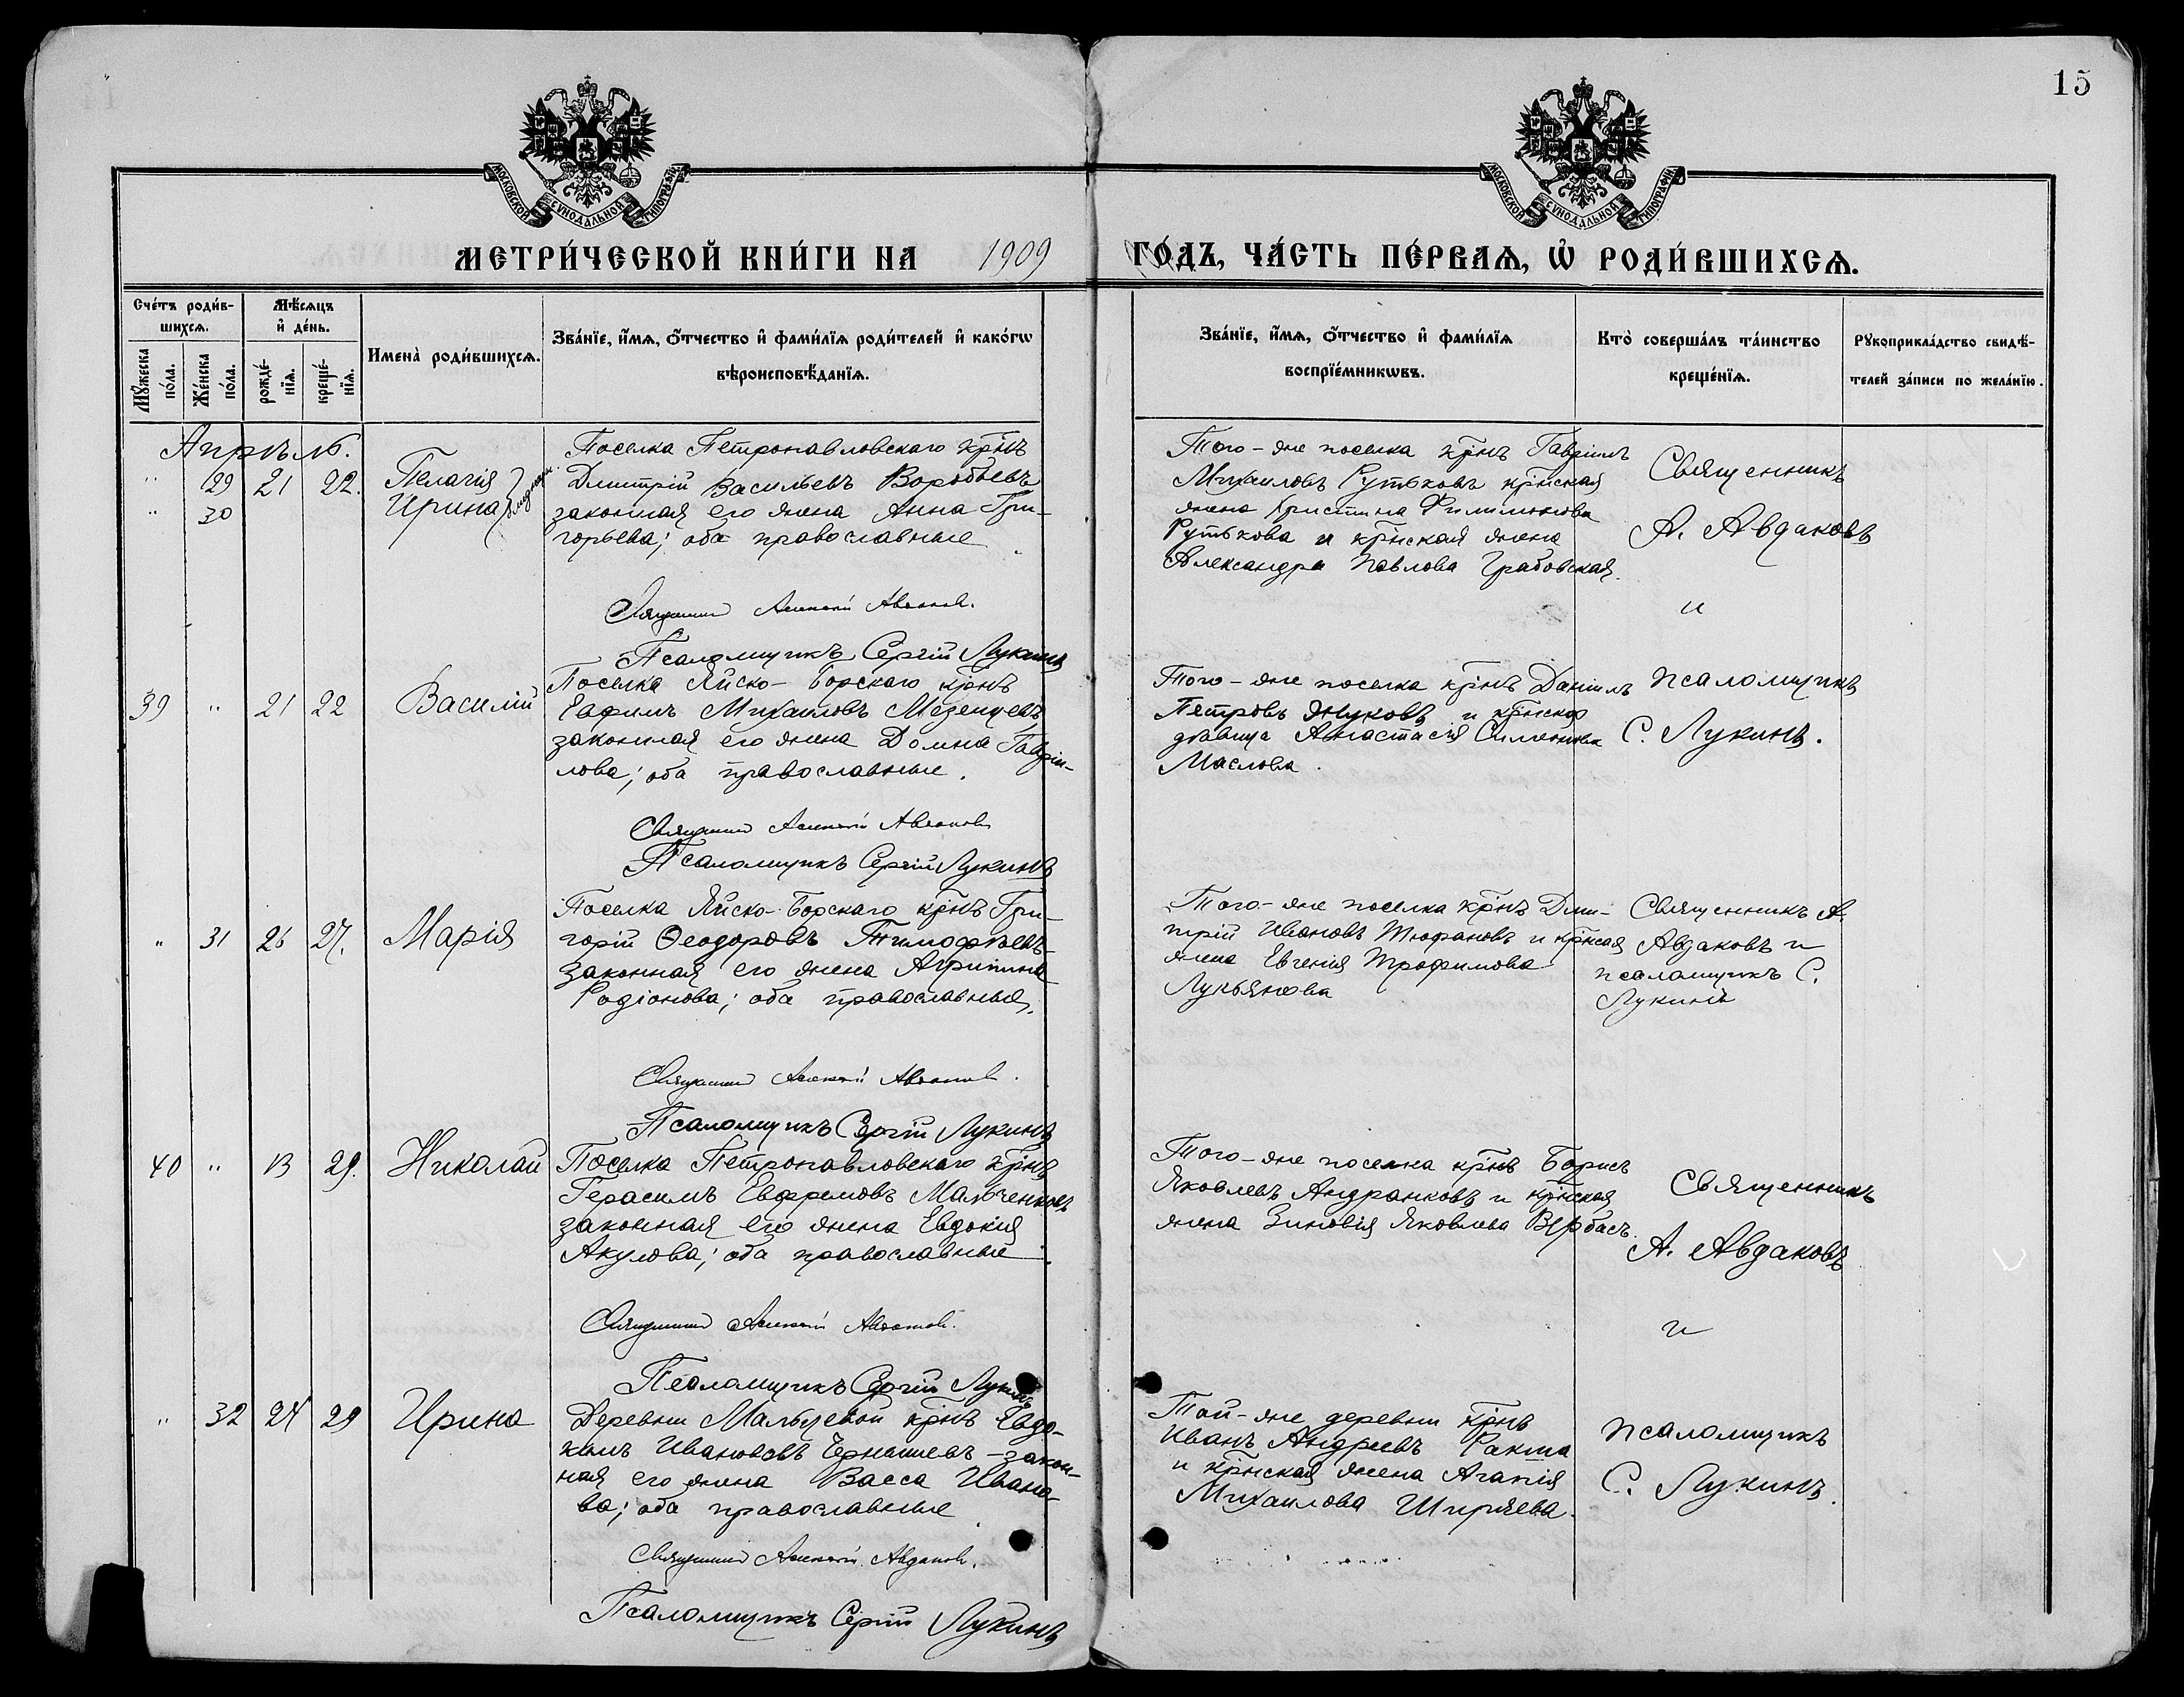 15
МОСКОВСКОЙ СѴНОДАЛЬНОЙ ТИПОГРАФІИ
МОСКОВСКОЙ СѴНОДАЛЬНОЙ ТИПОГРАФІИ
МЕТРИ́ЧЕСКОЙ КНИ́ГИ НА 1909 ГО́ДЪ, ЧА́СТЬ ПЕ́РВАѦ, Ѡ҆ РОДИ́ВШИХСѦ.
Сче́тъ роди́в-
шихсѧ.
Мꙋ́жеска по́ла.
Же́нска по́ла.
Мѣ́сѧцъ
и҆ де́нь.
рожде́-нїѧ.
креще́-нїѧ.
Имена̀ роди́вшихсѧ.
Зва́нїе, и҆́мѧ, ѻ҆́тчество и҆ фами́лїѧ роди́телей и҆ како́гѡ
вѣроисповѣ́данїѧ.
Зва́нїе, и҆́мѧ, ѻ҆́тчество и҆ фами́лїѧ
воспрїе́мникѡвъ.
Кто̀ соверша́лъ та́инство
креще́нїѧ.
Рꙋкоприкла́дство свидѣ́-
телей за́писи по жела́нїю.
Апрѣль.
" 29 21 22. Пелагія
" 30 Ирина
близнец.
Поселка Петропавловскаго крнъ
Дмитрій Васильевъ Воробьевъ
законная его жена Анна Гри-
горьева; оба православные
Священникъ Алексій Авдаковъ.
Псаломщикъ Сергій Лукинъ
Того-же поселка крнъ Гавріилъ
Михаиловъ Рутьковъ крнская
жена Христина Филимонова
Рутькова и крнская жена
Александра Павлова Грабовская.
Священникъ
А. Авдаковъ
и
псаломщикъ
С. Лукинъ.
39 " 21 22 Василій
Поселка Яйско-Борскаго крнъ
Евфимъ Михаиловъ Мезенцевъ
законная его жена Домна Гаврiи-
лова; оба православные.
Священникъ Алексій Авдаковъ
Псаломщикъ Сергій Лукинъ
Того-же поселка крнъ Даніилъ
Петровъ Жуковъ и крнская
дѣвица Анастасія Симеонова
Маслова.
" 31 26 27. Марія
Поселка Яйско-Борскаго крнъ Гри-
горій Ѳеодоровъ Тимофѣевъ-
законная его жена Агрипина
Родіонова; оба православные.
Священникъ Алексій Авдаковъ.
Псаломщикъ Сергій Лукинъ
Того-же поселка крнъ Дми-
трій Ивановъ Тюфановъ и крнская
жена Евгенія Трофимова
Лукьянова
Священникъ А.
Авдаковъ и
псаломщикъ С.
Лукинъ
40 " 13 29. Николай
Поселка Петропавловскаго крнъ
Герасимъ Евфремовъ Мальченковъ
законная его жена Евдокія
Акулова; оба православные.
Священникъ Алексій Авдаковъ.
Псаломщикъ Сергій Лукинъ
Того-же поселка крнъ Борисъ
Яковлевъ Андранковъ и крнская
жена Зиновія Яковлева Вербасъ.
Священникъ
А. Авдаковъ
и
псаломщикъ
С. Лукинъ.
" 32 24 29 Ирина
Деревни Мальцевой крнъ Евдо-
кимъ Ивановъ Чернышевъ-закон-
ная его жена Васса Ивано-
ва; оба православные
Священникъ Алексій Авдаковъ.
Псаломщикъ Сергій Лукинъ
Той-же деревни крнъ
Иванъ Андреевъ Ракша
и крнская жена Агапія
Михаилова Ширяева.